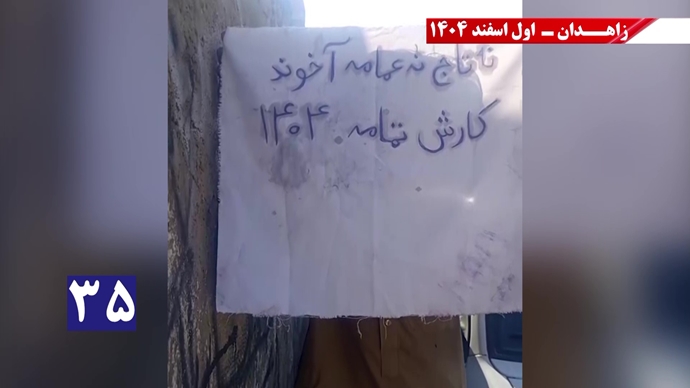 زاهـدان ـ اول اسفند ۱۴۰۴
نه تاج نه عمامه آخوند
کارش تمامه. ۱۴۰۴
۳۵